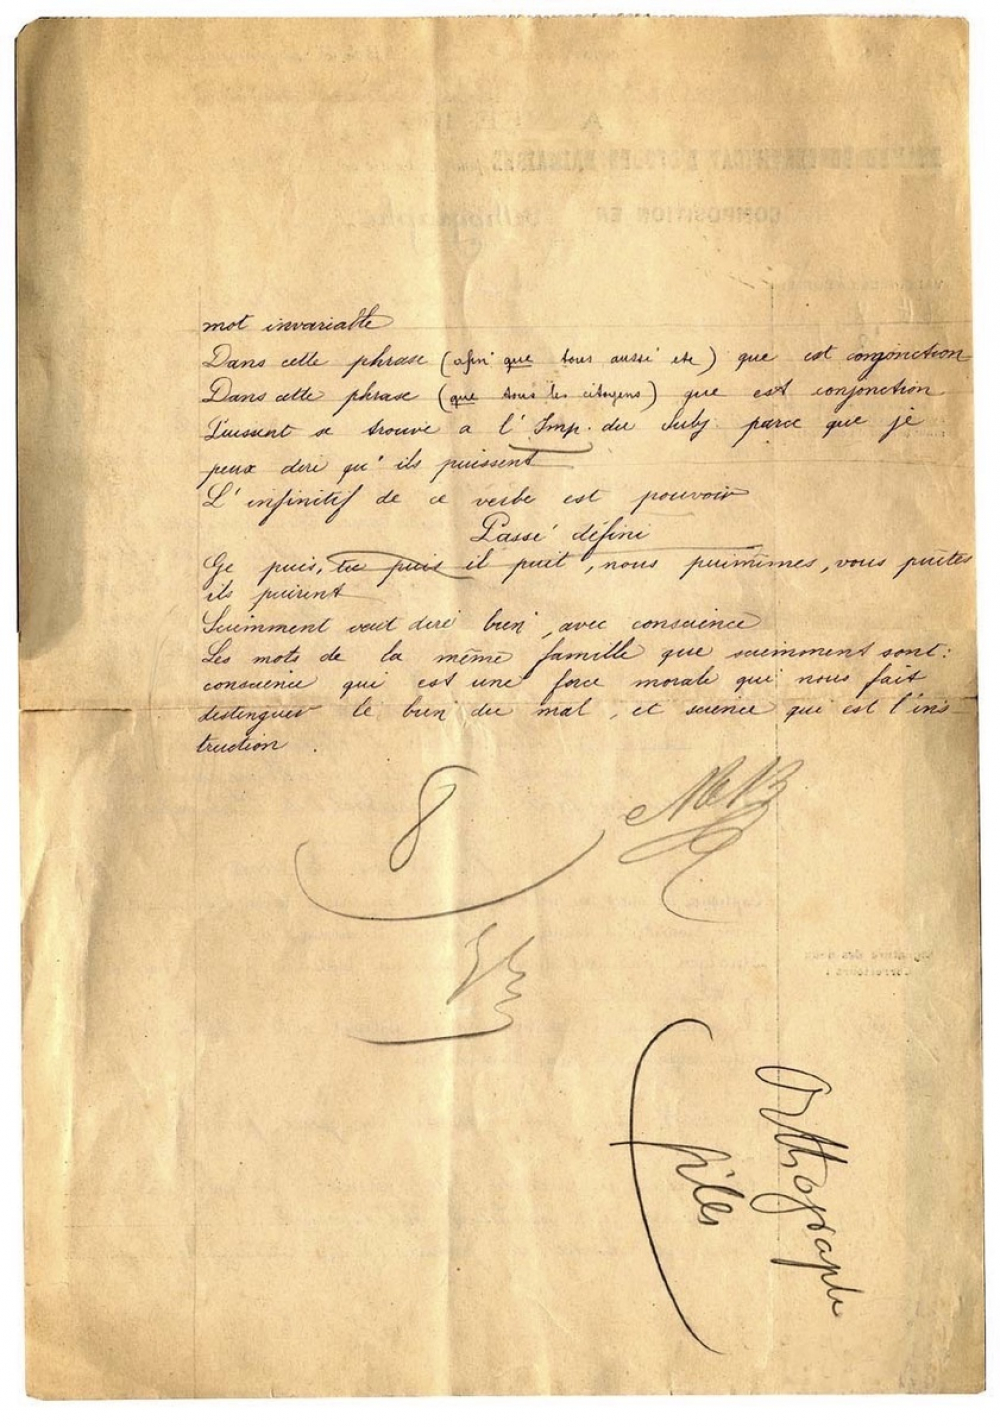 mot invariable
Dans cette phrase (afin que tous aussi etc) que est conjonction
Dans cette phrase (que tous les citoyens) que est conjonction
Puissent se trouve a l'Imp. du Subj. parce que je
peux dire qu'ils puissent
L'infinitif de ce verbe est pouvoir
Passé défini
Ge puis, tu puis il puit, nous puimimes, vous puites
ils puirent
Sciemment veut dire bien, avec conscience
Les mots de la même famille que sciemment sont:
conscience qui est une force morale qui nous fait
distinguer le bien du mal, et science qui est l'ins
truction.
8
Orthographe
filles